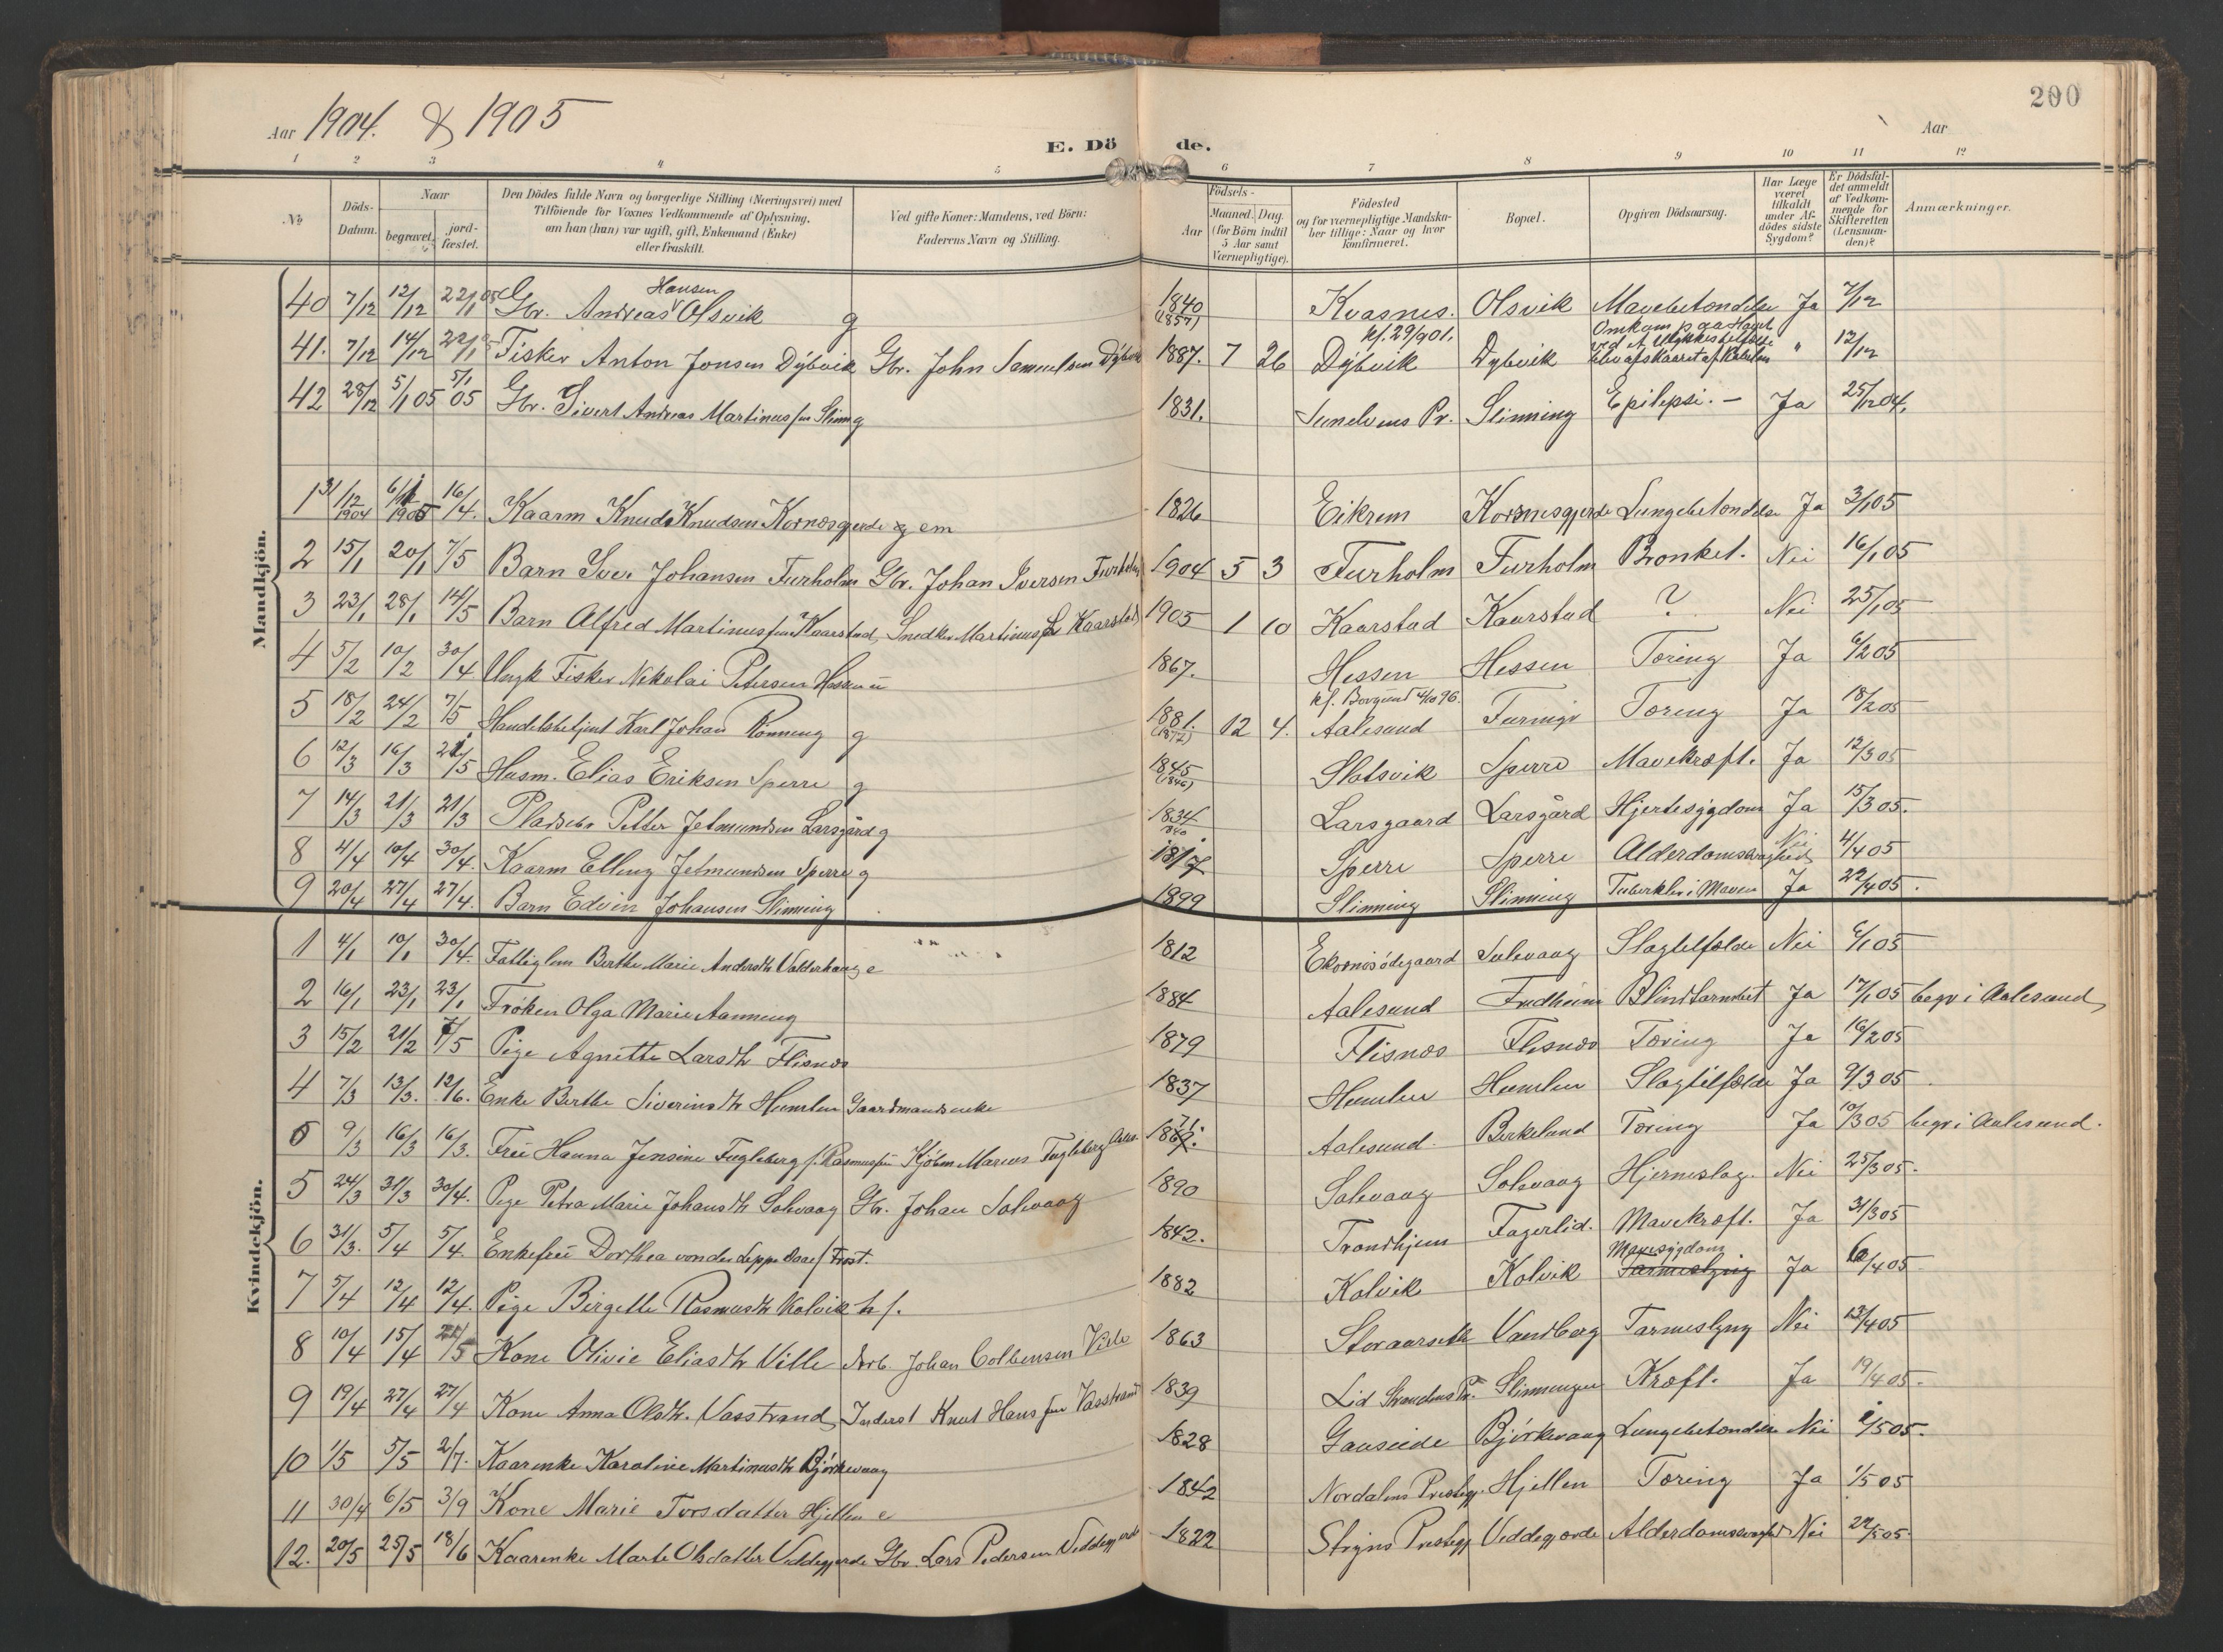 200
Aar 1904. & 1905
Aar
E. Dö de.
1 2 3 4 5 6 7 8 9 10 11 12
No
Döds-Datum.
Naar
begravet.
jord-fæstet.
Den Dödes fulde Navn og borgerlige Stilling (Næringsvei) med
Tilföiende for Voxnes Vedkommende af Oplysning,
om han (hun) var ugift, gift, Enkemand (Enke)
eller fraskilt.
Ved gifte Koner: Mandens, ved Börn:
Faderens Navn og Stilling.
Födsels-
Aar
Maaned. Dag.
(for Börn indtil
5 Aar samt
Værnepligtige).
Födested
og for værnepligtige Mandska-
ber tillige: Naar og hvor
konfirmeret.
Bopæl.
Opgiven Dödsaarsag.
Har Læge
været
tilkaldt
under Af-
dödes sidste
Sygdom?
Er Dödsfal-
det anmeldt
af Vedkom-
mende for
Skifteretten
(Lensman-
den)?
Anmærkninger.
Mandkjön.
40 7/12 12/12 22/1 05 Gbr. Andreas Hansen Olsvik g 1840 (1857) Kvasnes. Olsvik Mavebetændelse Ja 7/12
41. 7/12 14/12 22/1 Fisker Anton Jonsen Dybvik Gbr. John Samuelsen Dybvik 1887. 7 26 kf. 29/9 01. Dybvik Dybvik Omkom paa Havet ved et Ulykkestilfælde " 12/12
42 28/12 5/1 05 5/1 05 Gbr. Sivert Andreas Martinussen Slinn g 1831. Sunelvens Pr. Slinning Epilepsi. - Ja 25/12 04.
1 31/12 1904 6/1 1905 16/4. Kaarm Knud Knudsen Kornæsgjerde em 1826 Eikrem Kornnesgjerde Lungebetændelse Ja 3/1 05
2 15/1 20/1 7/5 Barn Iver Johansen Furholm Gbr. Johan Iversen Furholm 1904 5 3 Furholm Furholm Bronket. Nei 16/1 05
3 23/1 28/1 14/5 Barn Alfred Martinussen Kaarstad Snedker Martinus Kaarstad 1905 1 10 Kaarstad Kaarstad ? Nei 25/1 05
4 5/2 10/2 30/4 Ungk Fisker Nikolai Petersen Hessen u 1867. Hessen Hessen Tæring Ja 6/2 05
5 18/2 24/2 7/5 Handelsbetjent Karl Johan Rønning g 1881. (1872) 12 4. kf. Borgund 4/10 96. Aalesund Furmyr Tæring Ja 18/2 05
6 12/3 16/3 21/5 Husm. Elias Eriksen Sperre g 1845 (1846) Slatsvik Sperre Mavekræft. Ja 12/3 05
7 14/3 21/3 21/3 Pladsebr Petter Jetmundsen Larsgård g 1834 Larsgaard Larsgård Hjertesygdom Ja 15/3 05.
8 4/4 10/4 30/4. Kaarm Elling Jetmundsen Sperre g 1817 Sperre Sperre Alderdomssvaghed Nei 4/4 05
9 20/4 27/4 27/4. Barn Edvin Johansen Slinning 1899 Slinning Slinning Tuberkler i Maven Ja 22/4 05.
Kvindekjön.
1 4/1 10/1 30/4. Fattiglem Berthe Marie Andersdtr Valderhaug e 1812 Ekornsödegaard Solevaag Slagtilfælde Nei 6/1 05
2 16/1 23/1 23/1 Frøken Olga Marie Aanning 1884 Aalesund Fredheim Blindtarmbet Ja 17/1 05 begr i Aalesund
3 15/2 21/2 7/5 Pige Agnette Larsdtr Flisnæs 1879 Flisnæs Flisnæs Tæring Ja 16/2 05
4 7/3 13/3. 12/6. Enke Berthe Siverinsdtr Humlen Gaardmandsenke 1837 Humlen Humlen Slagtilfælde Ja 9/3 05
5 9/3 16/3 16/3. Frü Hanna Jensine Fugleberg f. Rasmussen Kjøbm Marius Fugleberg Aales. 1871. Aalesund. Birkelund Tæring Ja 10/3 05 begr i Aalesund.
5 24/3 31/3 30/4. Pige Petra Marie Johansdtr Solevaag Gbr. Johan Solevaag 1890 Solevaag Solevaag Hjerneslag. Nei 25/3 05.
6 31/3. 5/4 5/4. Enkefrü Dorthea von der Lippe Daae f Frost. 1842. Trondhjem Fagerlid. Mavekræft. Ja 31/3 05
7 5/4 12/4 12/4. Pige Birgitte Rasmusdtr Kolvik h f. 1882 Kolvik Kolvik Mavesygdom Tarmslyng Ja 6/4 05
8 10/4 15/4 21/5 Kone Olivie Eliasdtr Ville Arb. Johan Colbensen Ville 1863 Storaarseth Vandberg Tarmslyng Nei 13/4 05
9 19/4 27/4 27/4 Kone Anna Olsdtr. Vasstrand Inderst Knut Hanssen Vasstrand 1839 Lid Strandens Pr. Slinningen Kræft. Ja 19/4 05.
10 1/5 5/5 2/7. Kaarenke Karoline Martinusdtr Bjørkevaag 1828 Gauseide Bjørkevaag Lungebetændelse Nei 2/5 05.
11 30/4 6/5 3/9 Kone Marie Torsdatter Hjellen e 1842 Nordalens Prestegj. Hjellen Tæring Ja 1/5 05
12. 20/5 25/5 18/6 Kaarenke Marte Olsdatter Veddegjerde Gbr. Lars Pedersen Veddegjerde 1822 Stryns Prestegj Veddegjerde Alderdomssvaghed Nei 22/5 05.